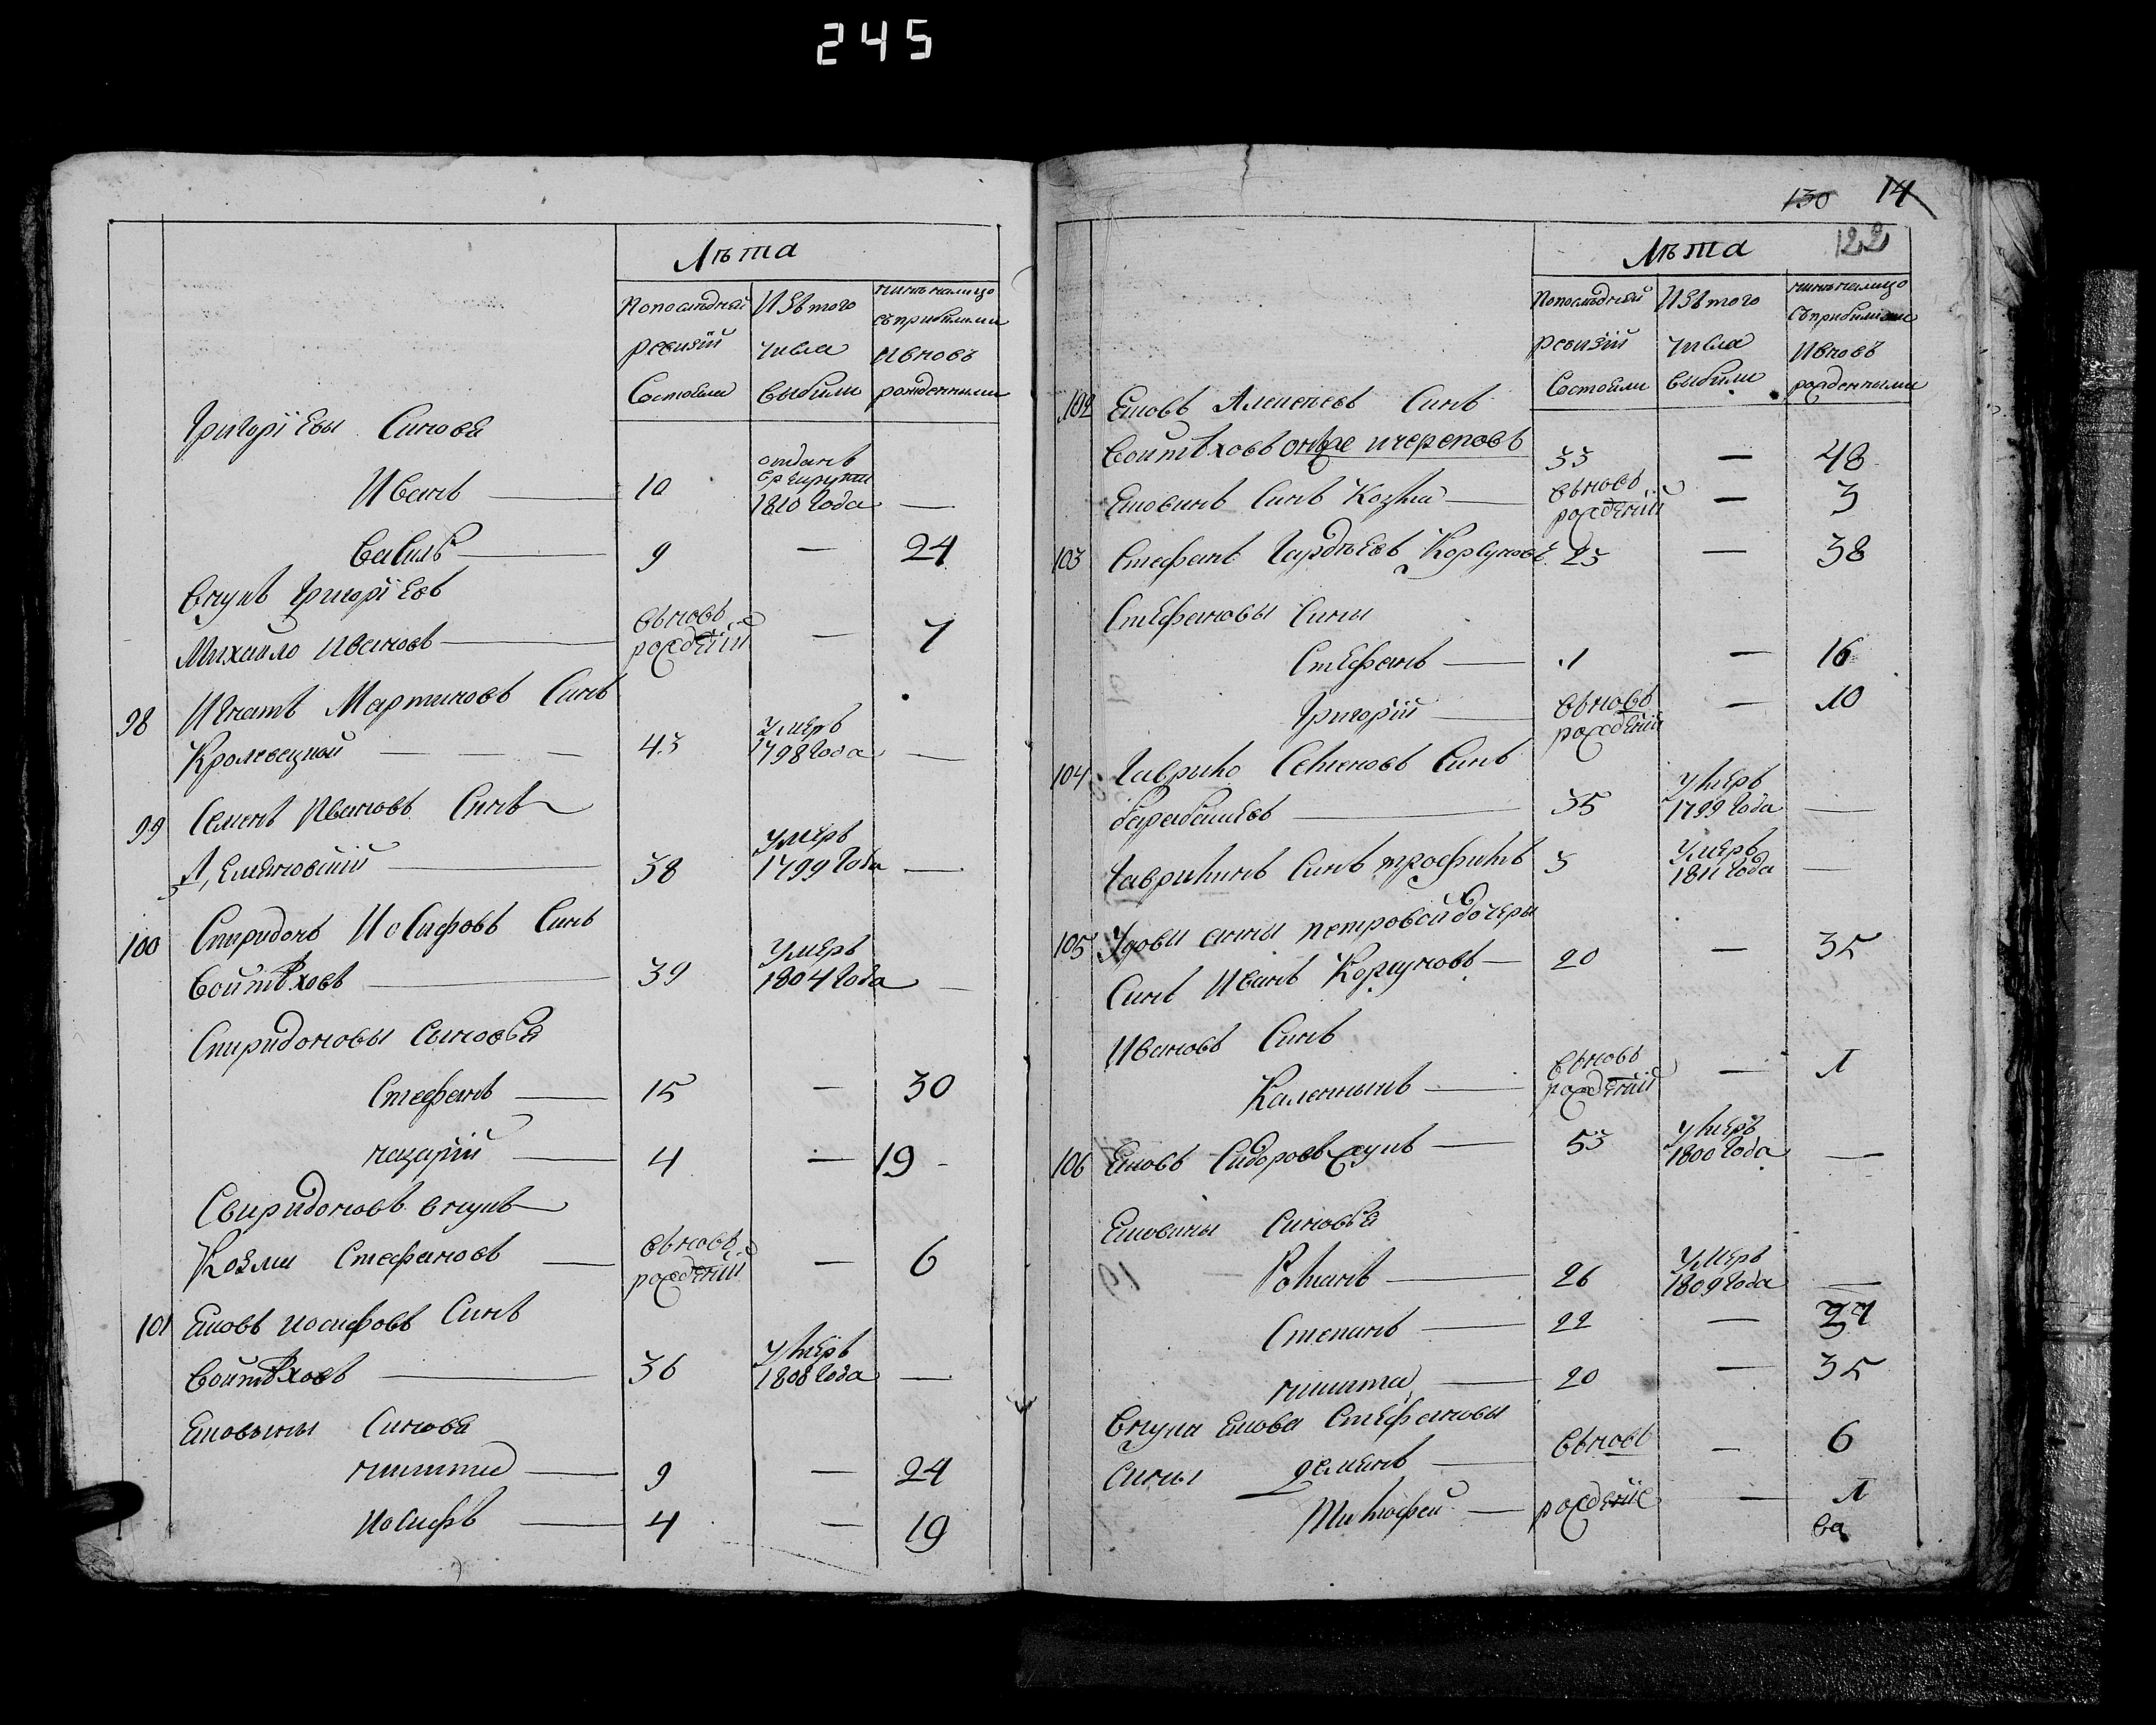 245
Лѣта
По последней
ревизіи
Состояли
Изъ того
числа
выбыли
ныне налицо
съ прибылыми
И вновь
рожденными
Григоріевы Синовя
Иванъ — 10 отданъ в рекруты 1810 Года —
Василь — 9 — 24
Внукъ Григоріевъ
Михайло Ивановъ — вновь рожденій — 7
98 Игнатъ Мартиновъ Синъ
Кролевецкой — — — 43 Умеръ 1798 Года —
99 Семенъ Ивановъ Синъ
— 38 Умеръ 1799 Года —
100 Спиридонъ Иосифовъ Синъ
Войтѣховъ — 39 Умеръ 1804 Года —
Спиридоновы Сыновья
Стефанъ — 15 — 30
назарій — 4 — 19
Свиридоновъ внукъ
Козма Стефановъ — вновь рожденій — 6
101 Яковъ иосифовъ Синъ
Войтѣховъ — 36 Умеръ 1808 Года —
Яковыны Синовя
никита — 9 — 24
Иосифъ — 4 — 19
130 14
122
Лѣта
По последней
ревизіи
Состояли
Изъ того
числа
выбыли
ныне налицо
съ прибылыми
И вновь
рожденными
102 Яковъ Алексеевъ Синъ
Войтѣховъ онже ичереповъ 33 — 48
Яковинъ Синъ Козма — вновь рожденій — 3
103 Стефанъ Гордѣевъ Корсуновъ 23 — 38
Стефановы Сины
Стефанъ — 1 — 16
Григорій — вновь рожденій — 10
104 Гаврило Семеновъ Синъ
барабашевъ — 35 Умеръ 1799 Года —
Гаврилинъ Синъ трофимъ 3 Умеръ 1811 Года —
105 Удовы анны петровой дочеры
Синъ Иванъ Корсуновъ — 20 — 35
Ивановъ Синъ
Каленыкъ — вновь рожденій — 1
106 Яковъ Сидоровъ — 53 Умеръ 1800 Года —
Яковины Синовья
Романъ — 26 Умеръ 1809 Года —
Степанъ — 22 — 37
никита — 20 — 35
Внуки Якова Стефановы
Сины демянъ — вновь — 6
Тимофей — рожденіе — 1